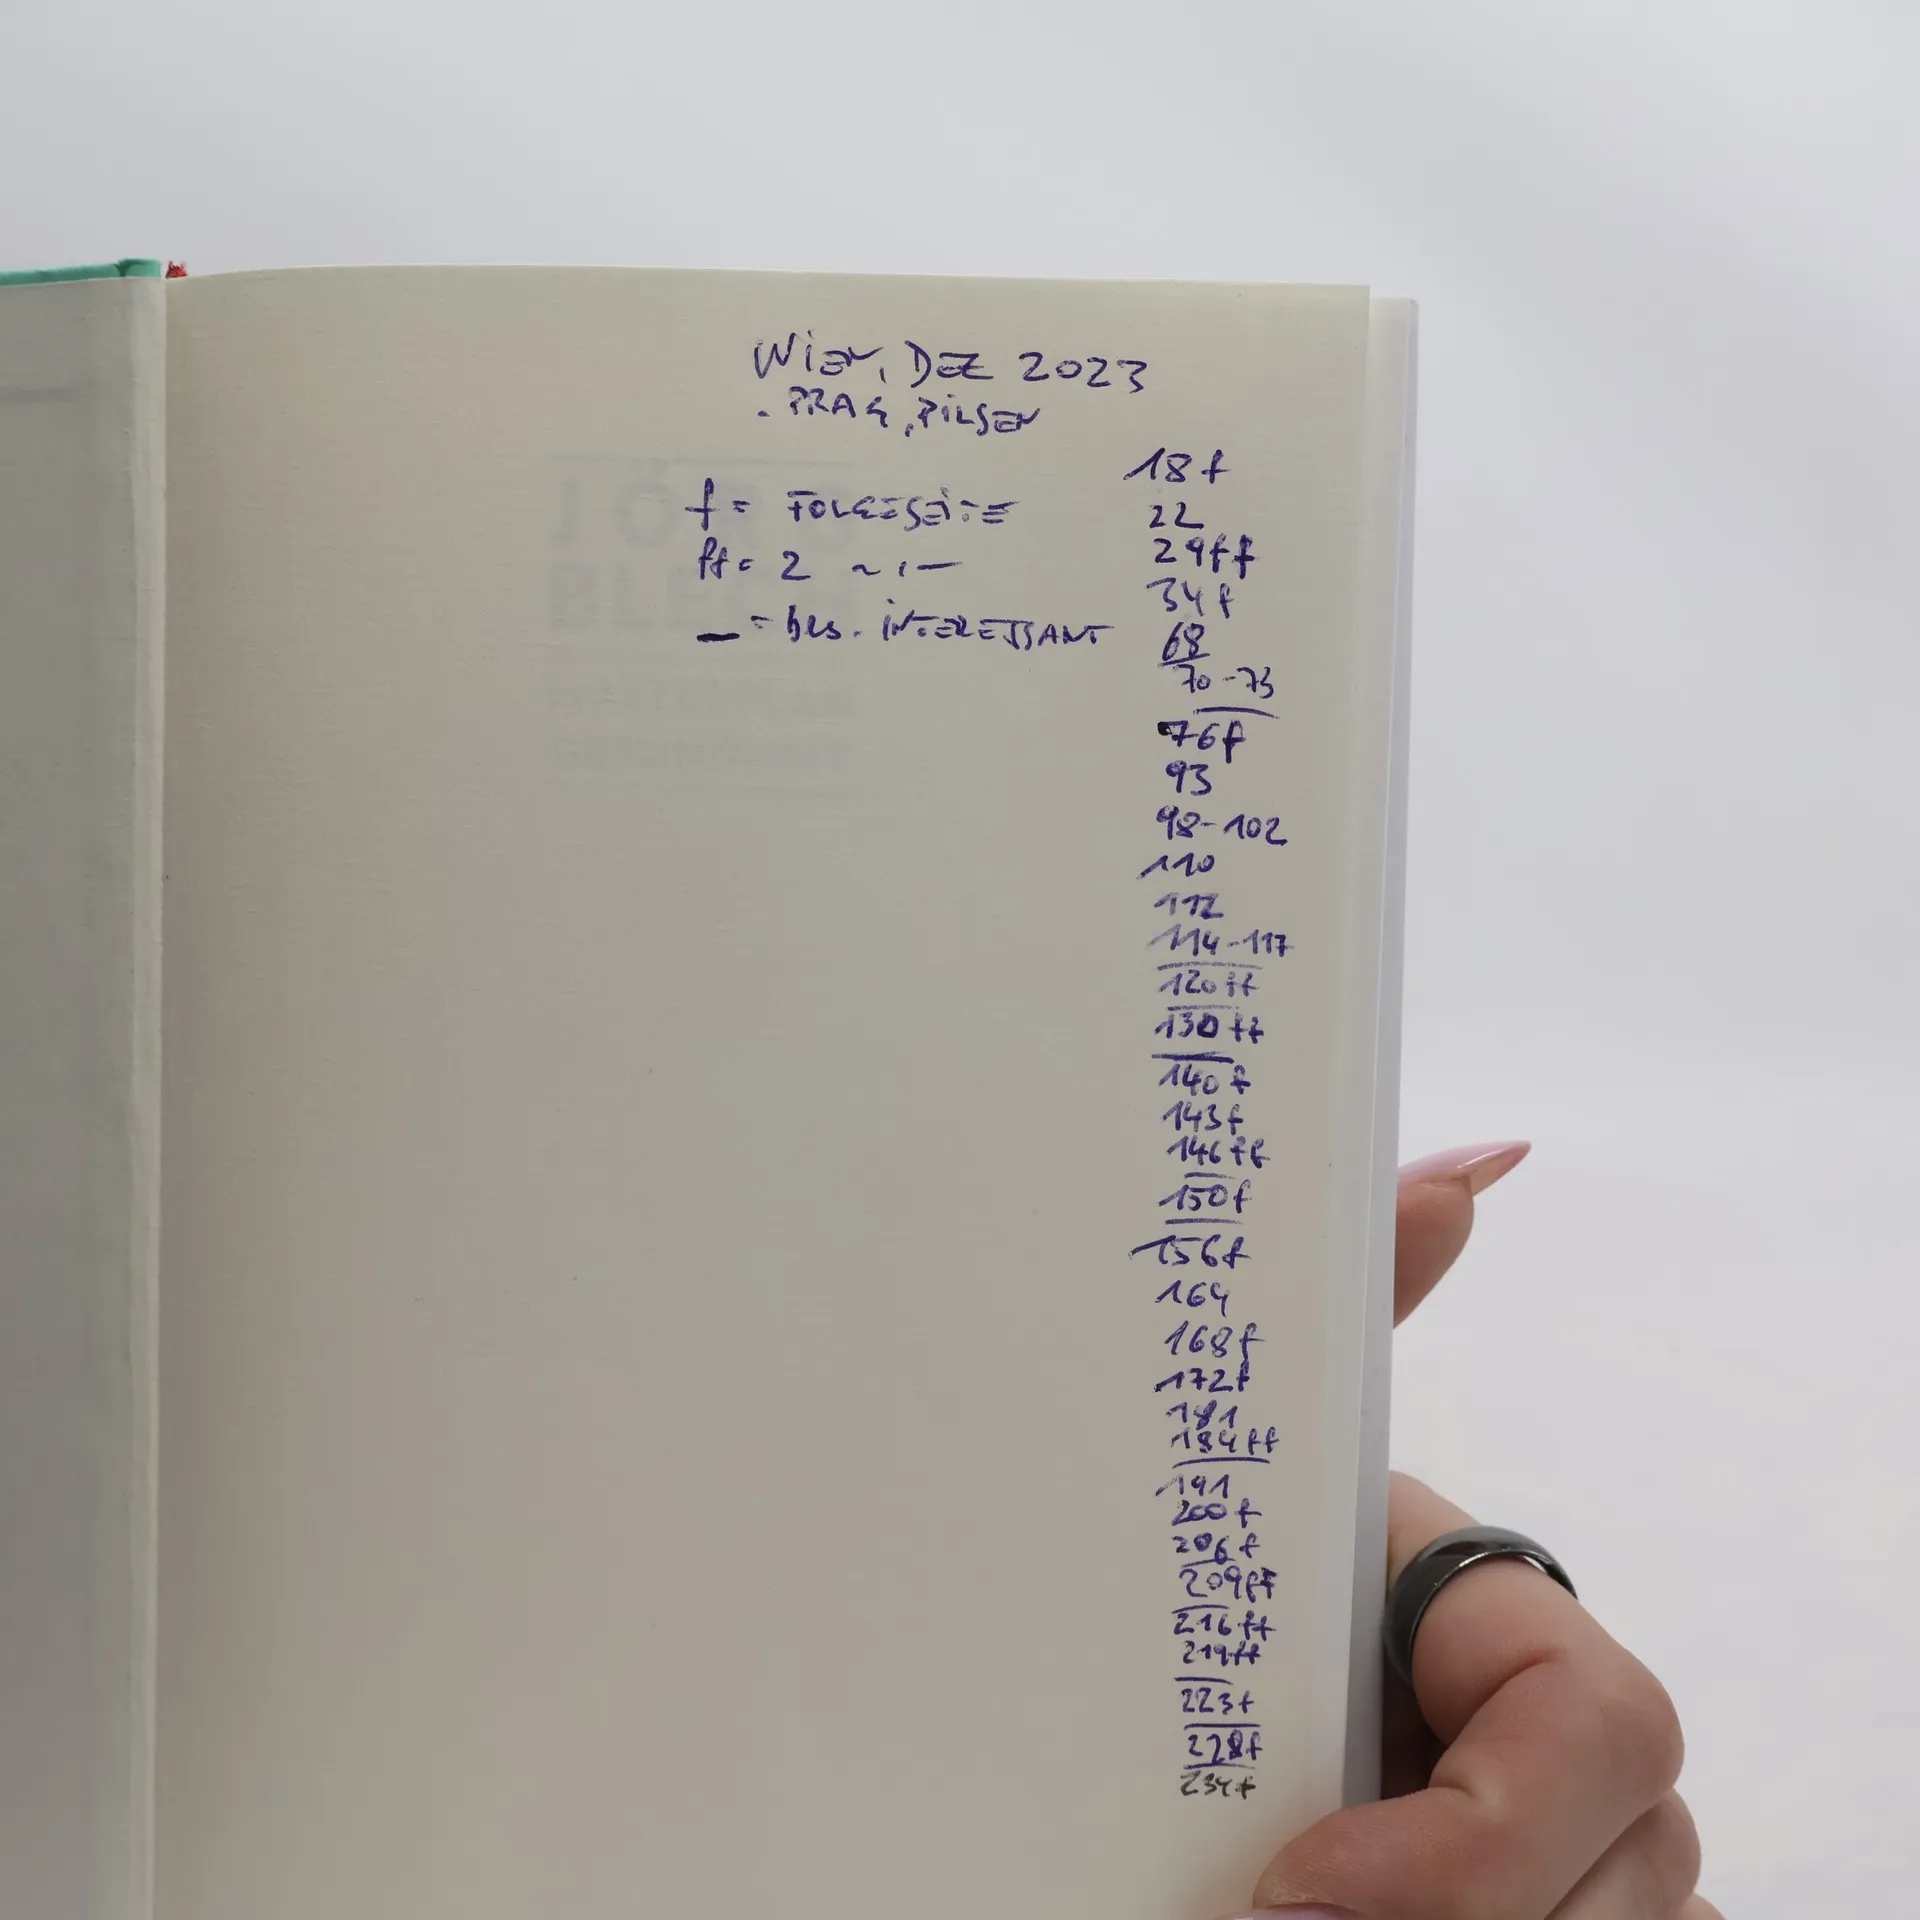 WiEN, DEZ 2023
. PRAG, PiLSEN
f = FOLGESEiTE
ff = 2 ~ , —
_ = bes. iNTERESSANT
18 f
22
29 ff
34 f
68
70-73
76 f
93
98-102
110
112
114-117
120 ff
130 ff
140 f
143 f
146 ff
150 f
156 f
164
168 f
172 f
181
184 ff
191
200 f
206 f
209 ff
216 ff
219 ff
223 f
228 f
234 f